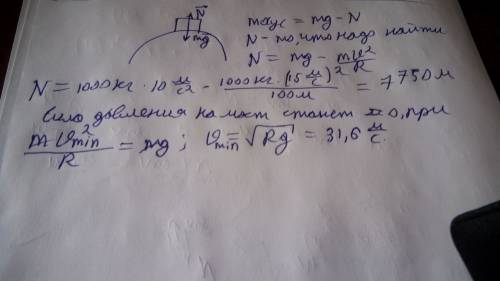 N⃗
mg
maус = mg - N
N - то, что надо найти
N = mg - mυ²/R
N = 1000 кг · 10 м/с² - 1000 кг · (15 м/с)²/100 м = 7750 м
сила давления на мост станет = 0, при
mυ²min/R = mg ; υmin = √Rg = 31,6 м/с.